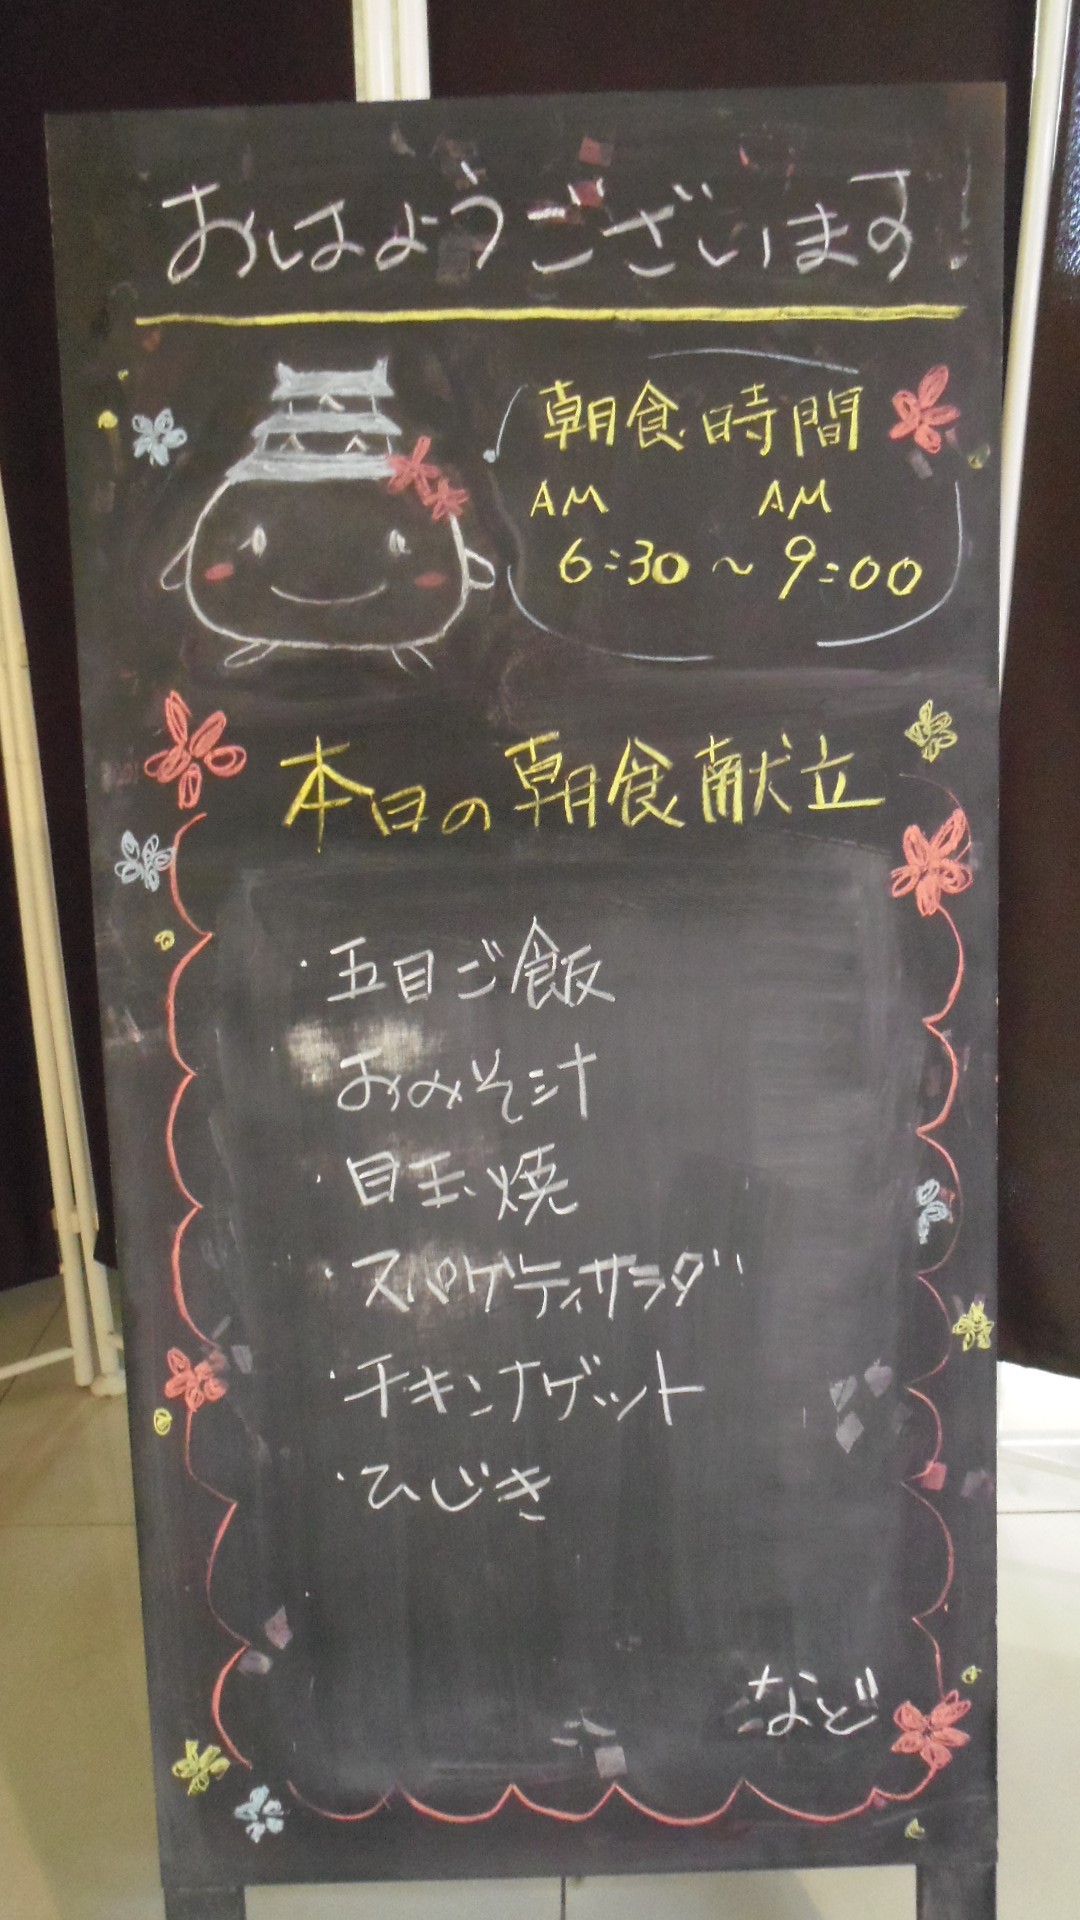 おはようございます!
朝食時間
AM AM
6:30～9:00
本日の朝食献立
・五目ご飯
おみそ汁
・目玉焼
・スパゲティサラダ
・チキンナゲット
・ひじき
など